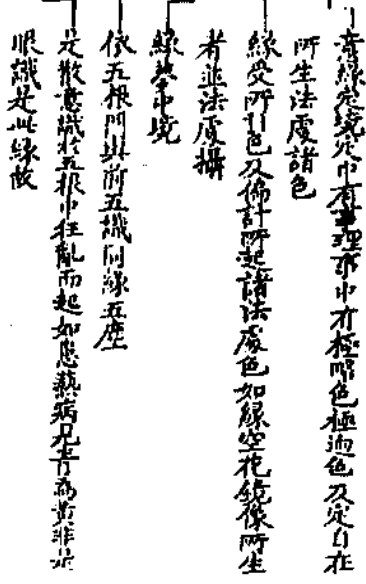 緣定境定中有事理事中有極略色極迥色及定自在
所生法處諸色
緣受所引色及徧計所起諸法處色如緣空花鏡像所生
者並法處攝
緣夢中境
依五根門與前五識同緣五塵
是散意識於五根中狂亂而起如患熱病見青為黃非是
眼識是此緣故